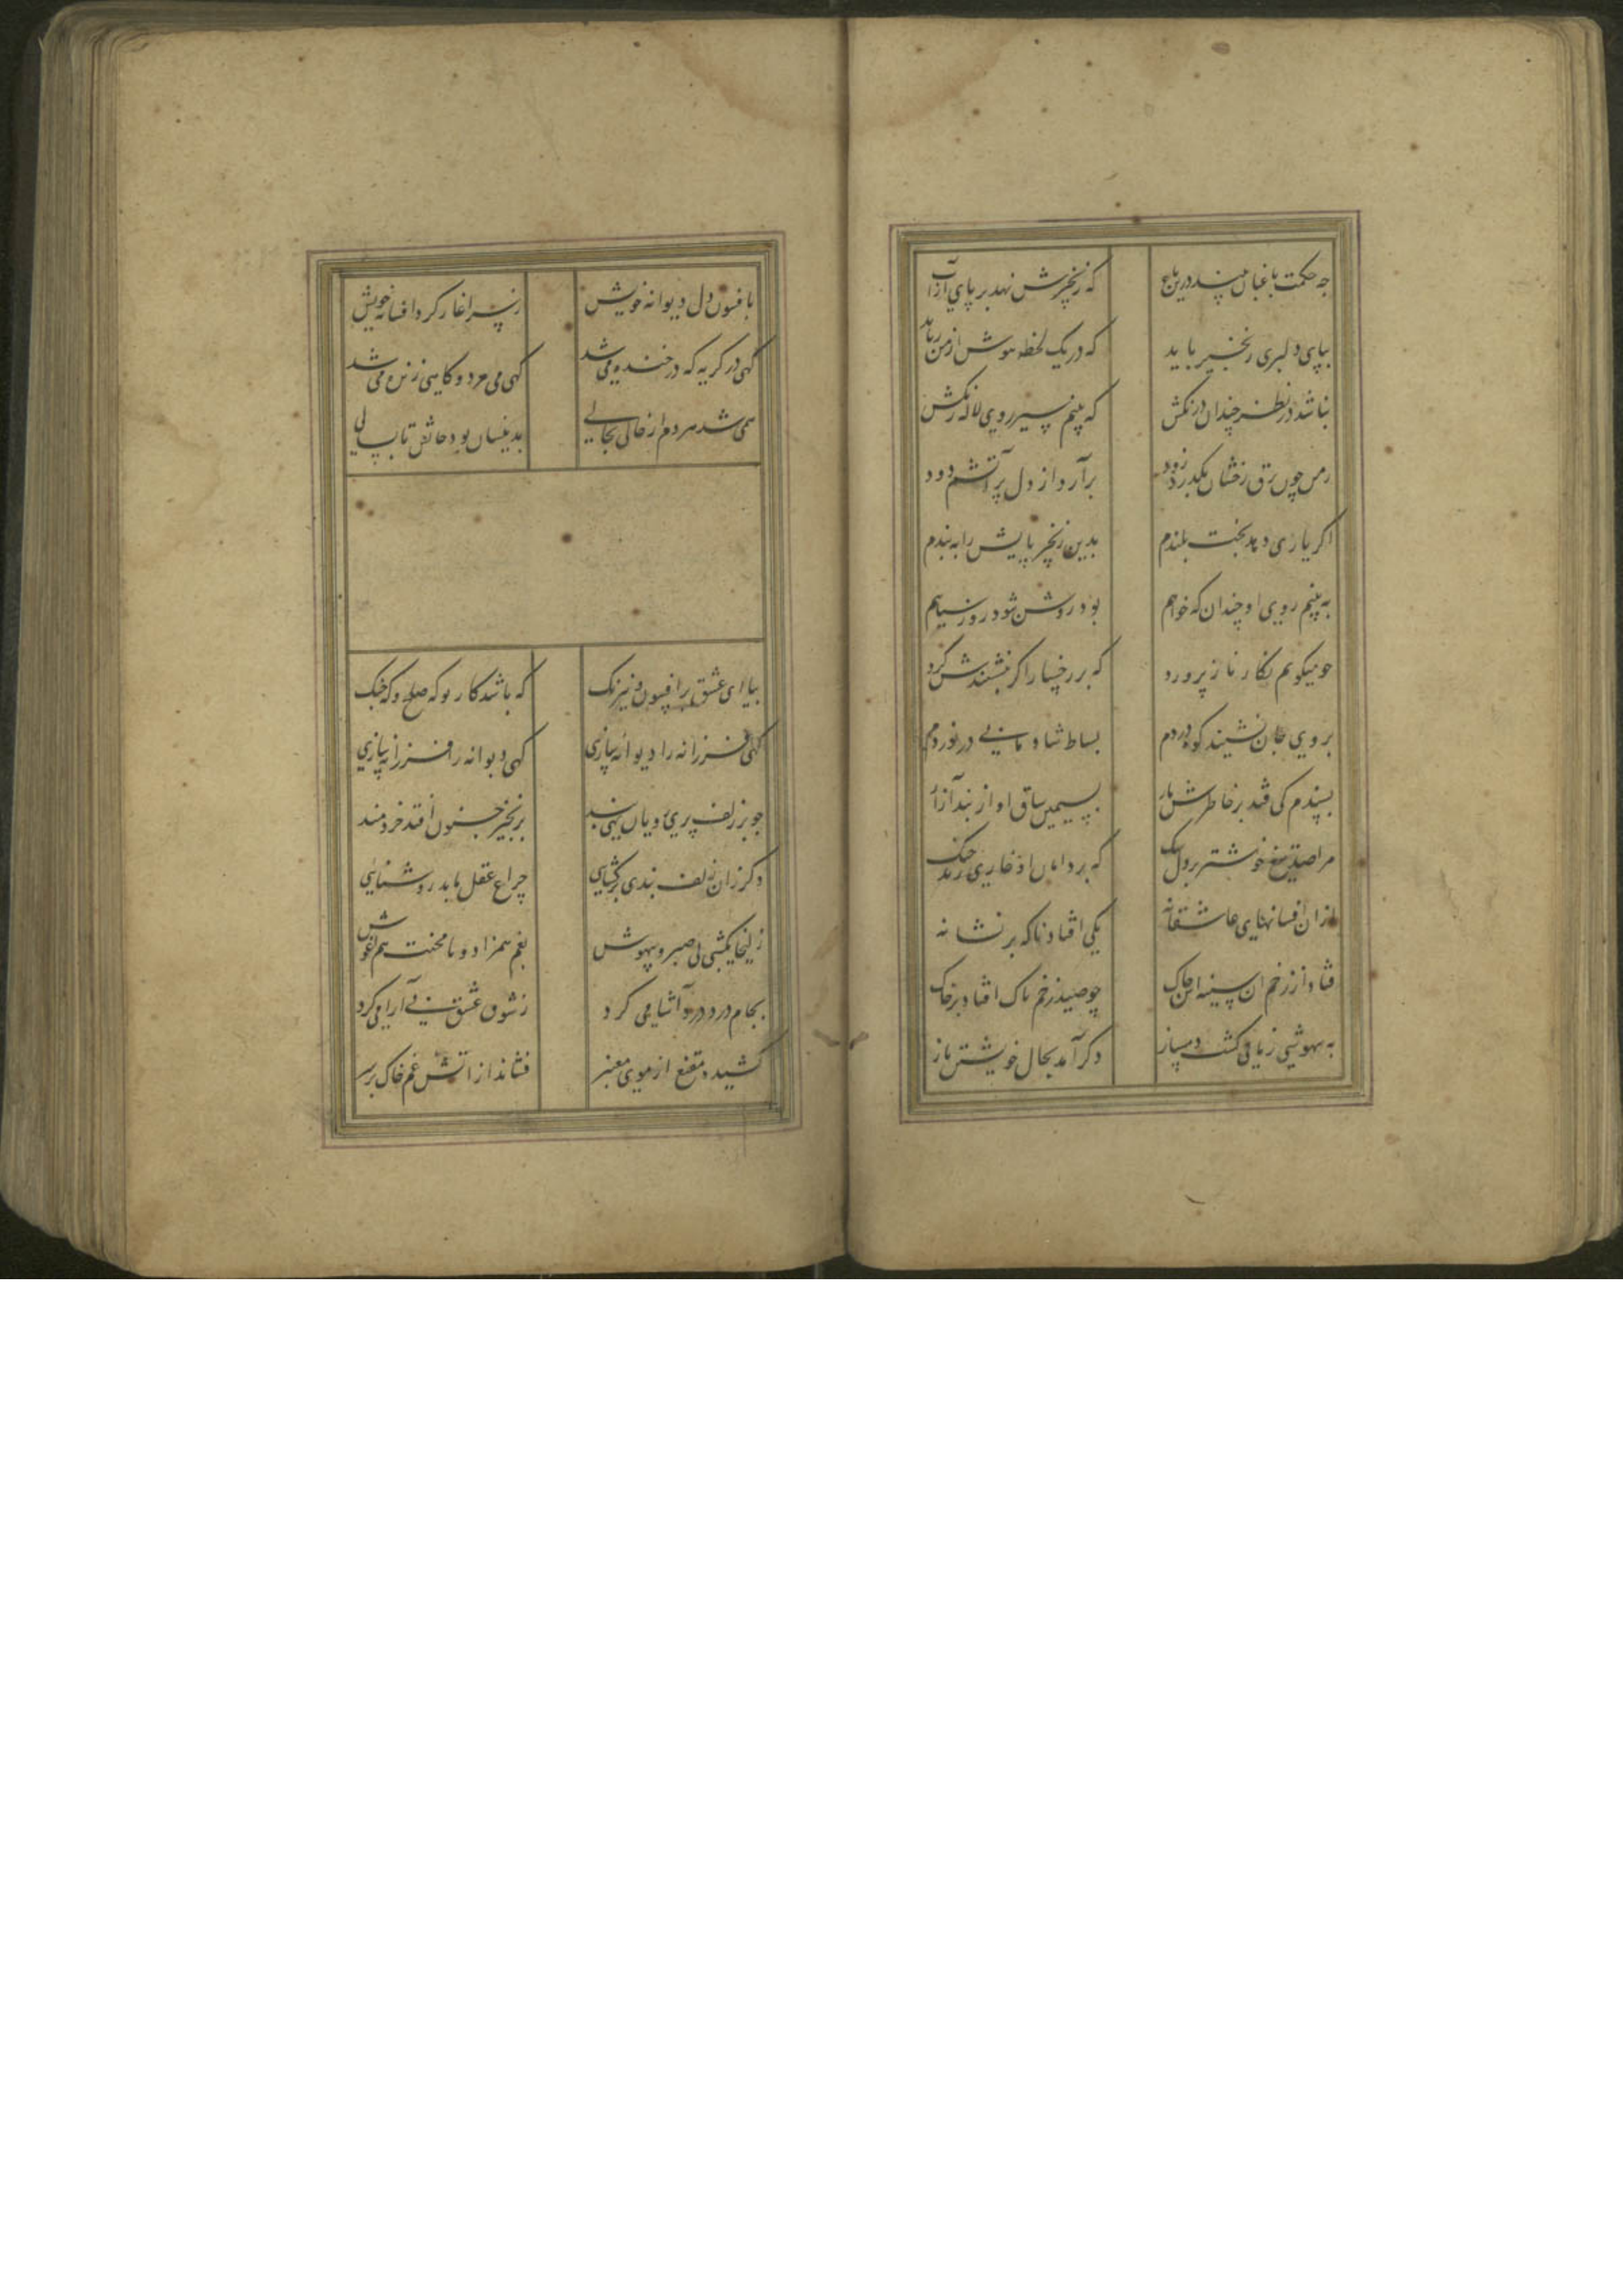 چه حکمت باغبان بیند درین باب
که زنجیرش نهد بر پای از آب
بپای دلبری زنجیر باید
که در یک لحظه هوش از من رباید
نباشد در نظر چندان درنگش
که بینم سیر روی لاله رنگش
ز من چون برق رخشان بگذرد زود
برآرد از دل پر آتشم دود
اگر یاری دهد بخت بلندم
بدین زنجیر پایش را به بندم
به بینم روی او چندان که خواهم
بدو روشن شود روز سیاهم
چو میکویم نکار ناز پرورد
که بر رخسارا کر بنشیندش کرد
بروی جان نشیند کوه دردم
بساط شادمانی در نوردم
پسندم کی فتد بر خاطرش بار
بسیمین ساق او از بند آزار
مرا صد تیغ خوشتر بر دل تنک
که بر دامان او خاری زند چنک
ازان افسانهای عاشقانه
یکی افتاد ناکه بر نشانه
فتاد از زخم ان سینه اش چاک
چو صید زخم ناک افتاد بر خاک
به بیهوشی زمانی کشت دمساز
دکر آمد بحال خویشتن باز
بافسون دل دیوانه خویش
ز سر اغاز کرد افسانه خویش
کهی در کریه که در خنده می شد
کهی می مرد و کاهی زنده می شد
همی شد هر دم از حالی بحالی
بدینسان بود حالش تا بسالی
بیا ای عشق پر افسون و نیرنک
که باشد کار تو که صلح و که جنک
کهی فرزانه را دیوانه سازی
کهی دیوانه را فرزانه سازی
چو بر زلف پری رویان نهی بند
بزنجیر جنون افتد خردمند
وکر زان زلف بندی برکشایی
چراغ عقل یابد روشنایی
زلیخا یکشبی بی صبر و بیهوش
بغم همزاد و با محنت هم اغوش
بجام درد درد آشامی کرد
ز شوق عشق بی آرامی کرد
کشید مقنع از موی معنبر
فشاند از اتش غم خاک بر سر